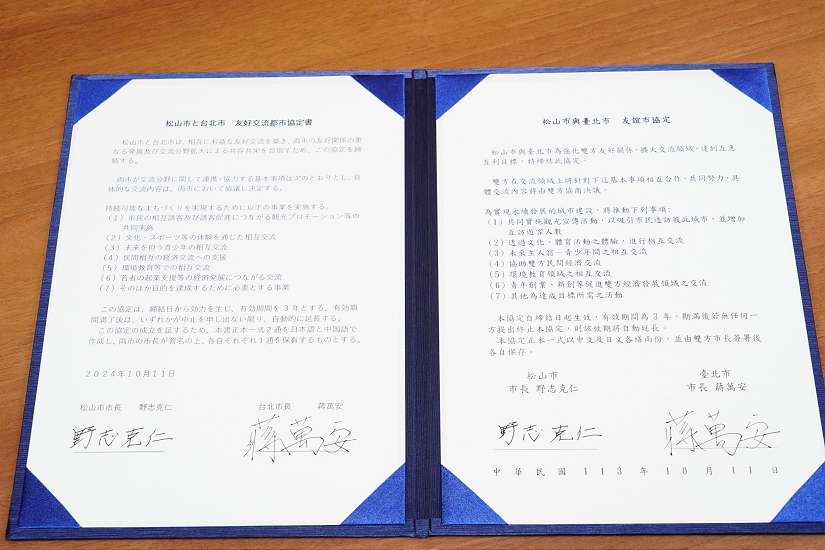 松山市と台北市　友好交流都市協定書
松山市と台北市は、相互に有益な友好交流を築き、両市の友好関係の更
なる発展及び交流分野拡大による共存共栄を目指すため、この協定を締
結する。
両市が交流分野に関して連携・協力する基本事項は次のとおりとし、具
体的な交流内容は、両市において協議し決定する。
持続可能なまちづくりを実現するために以下の事業を実施する。
（１）市民の相互誘客及び誘客促進につながる観光プロモーション等の
共同実施
（２）文化・スポーツ等の体験を通じた相互交流
（３）未来を担う青少年の相互交流
（４）民間相互の経済交流への支援
（５）環境教育等での相互交流
（６）若者の起業支援等の経済発展につながる交流
（７）そのほか目的を達成するために必要とする事業
この協定は、締結日から効力を生じ、有効期間を３年とする。有効期
間満了後は、いずれかが中止を申し出ない限り、自動的に延長する。
この協定の成立を証するため、本書正本一式２通を日本語と中国語で
作成し、両市の市長が署名の上、各自それぞれ１通を保有するものとする。
２０２４年１０月１１日
松山市市長　野志克仁　台北市長　蔣萬安
野志克仁　蔣萬安
松山市與臺北市　友誼市協定
松山市與臺北市為強化雙方友好關係，擴大交流領域，達到互惠
互利目標，特締結此協定。
雙方在交流領域上將針對下述基本事項相互合作、共同努力，具
體交流內容將由雙方協商決議。
為實現永續發展的城市建設，將推動下列事項：
(1) 共同實施觀光宣傳活動，以吸引市民造訪彼此城市，並增加
互訪遊客人數
(2) 透過文化、體育活動之體驗，進行相互交流
(3) 未來主人翁－青少年間之相互交流
(4) 協助雙方民間經濟交流
(5) 環境教育領域之相互交流
(6) 青年創業、新創等促進雙方經濟發展領域之交流
(7) 其他為達成目標所需之活動
本協定自締結日起生效，有效期間為 3 年，期滿後若無任何一
方提出終止本協定，則該效期將自動延長。
本協定正本一式以中文及日文各繕兩份，並由雙方市長簽署後
各自保存。
松山市　臺北市
市長 野志克仁　市長 蔣萬安
野志克仁　蔣萬安
中 華 民 國 113 年 10 月 11 日